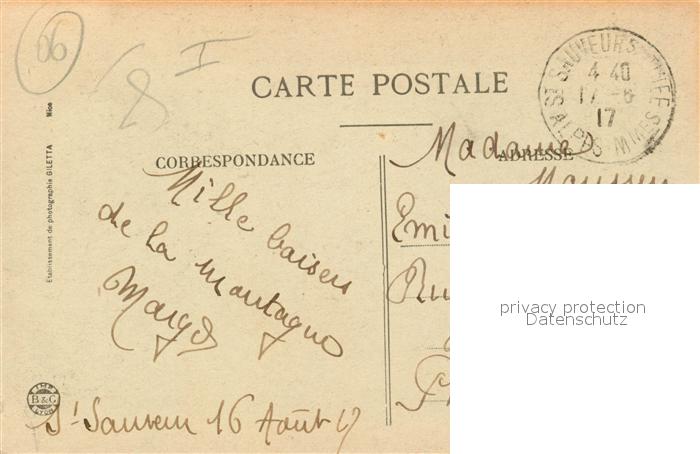 06
8 I
CARTE POSTALE
ST SAUVEUR S TINÉE
4 40
17 -8
17
ALPES MMES
CORRESPONDANCE
ADRESSE
Mille baisers
de la montagne
St Sauveur 16 Août 17
Madame
Etablissement de photographie GILETTA Nice
IMP.
B & G
LYON
privacy protection
Datenschutz